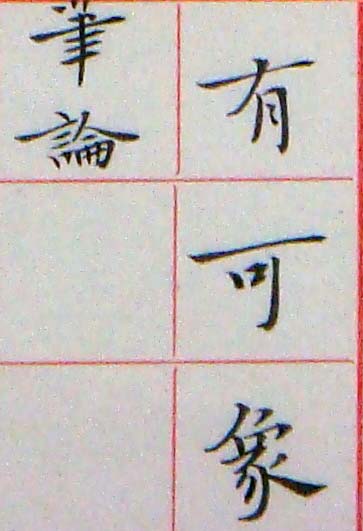 有可象
筆論